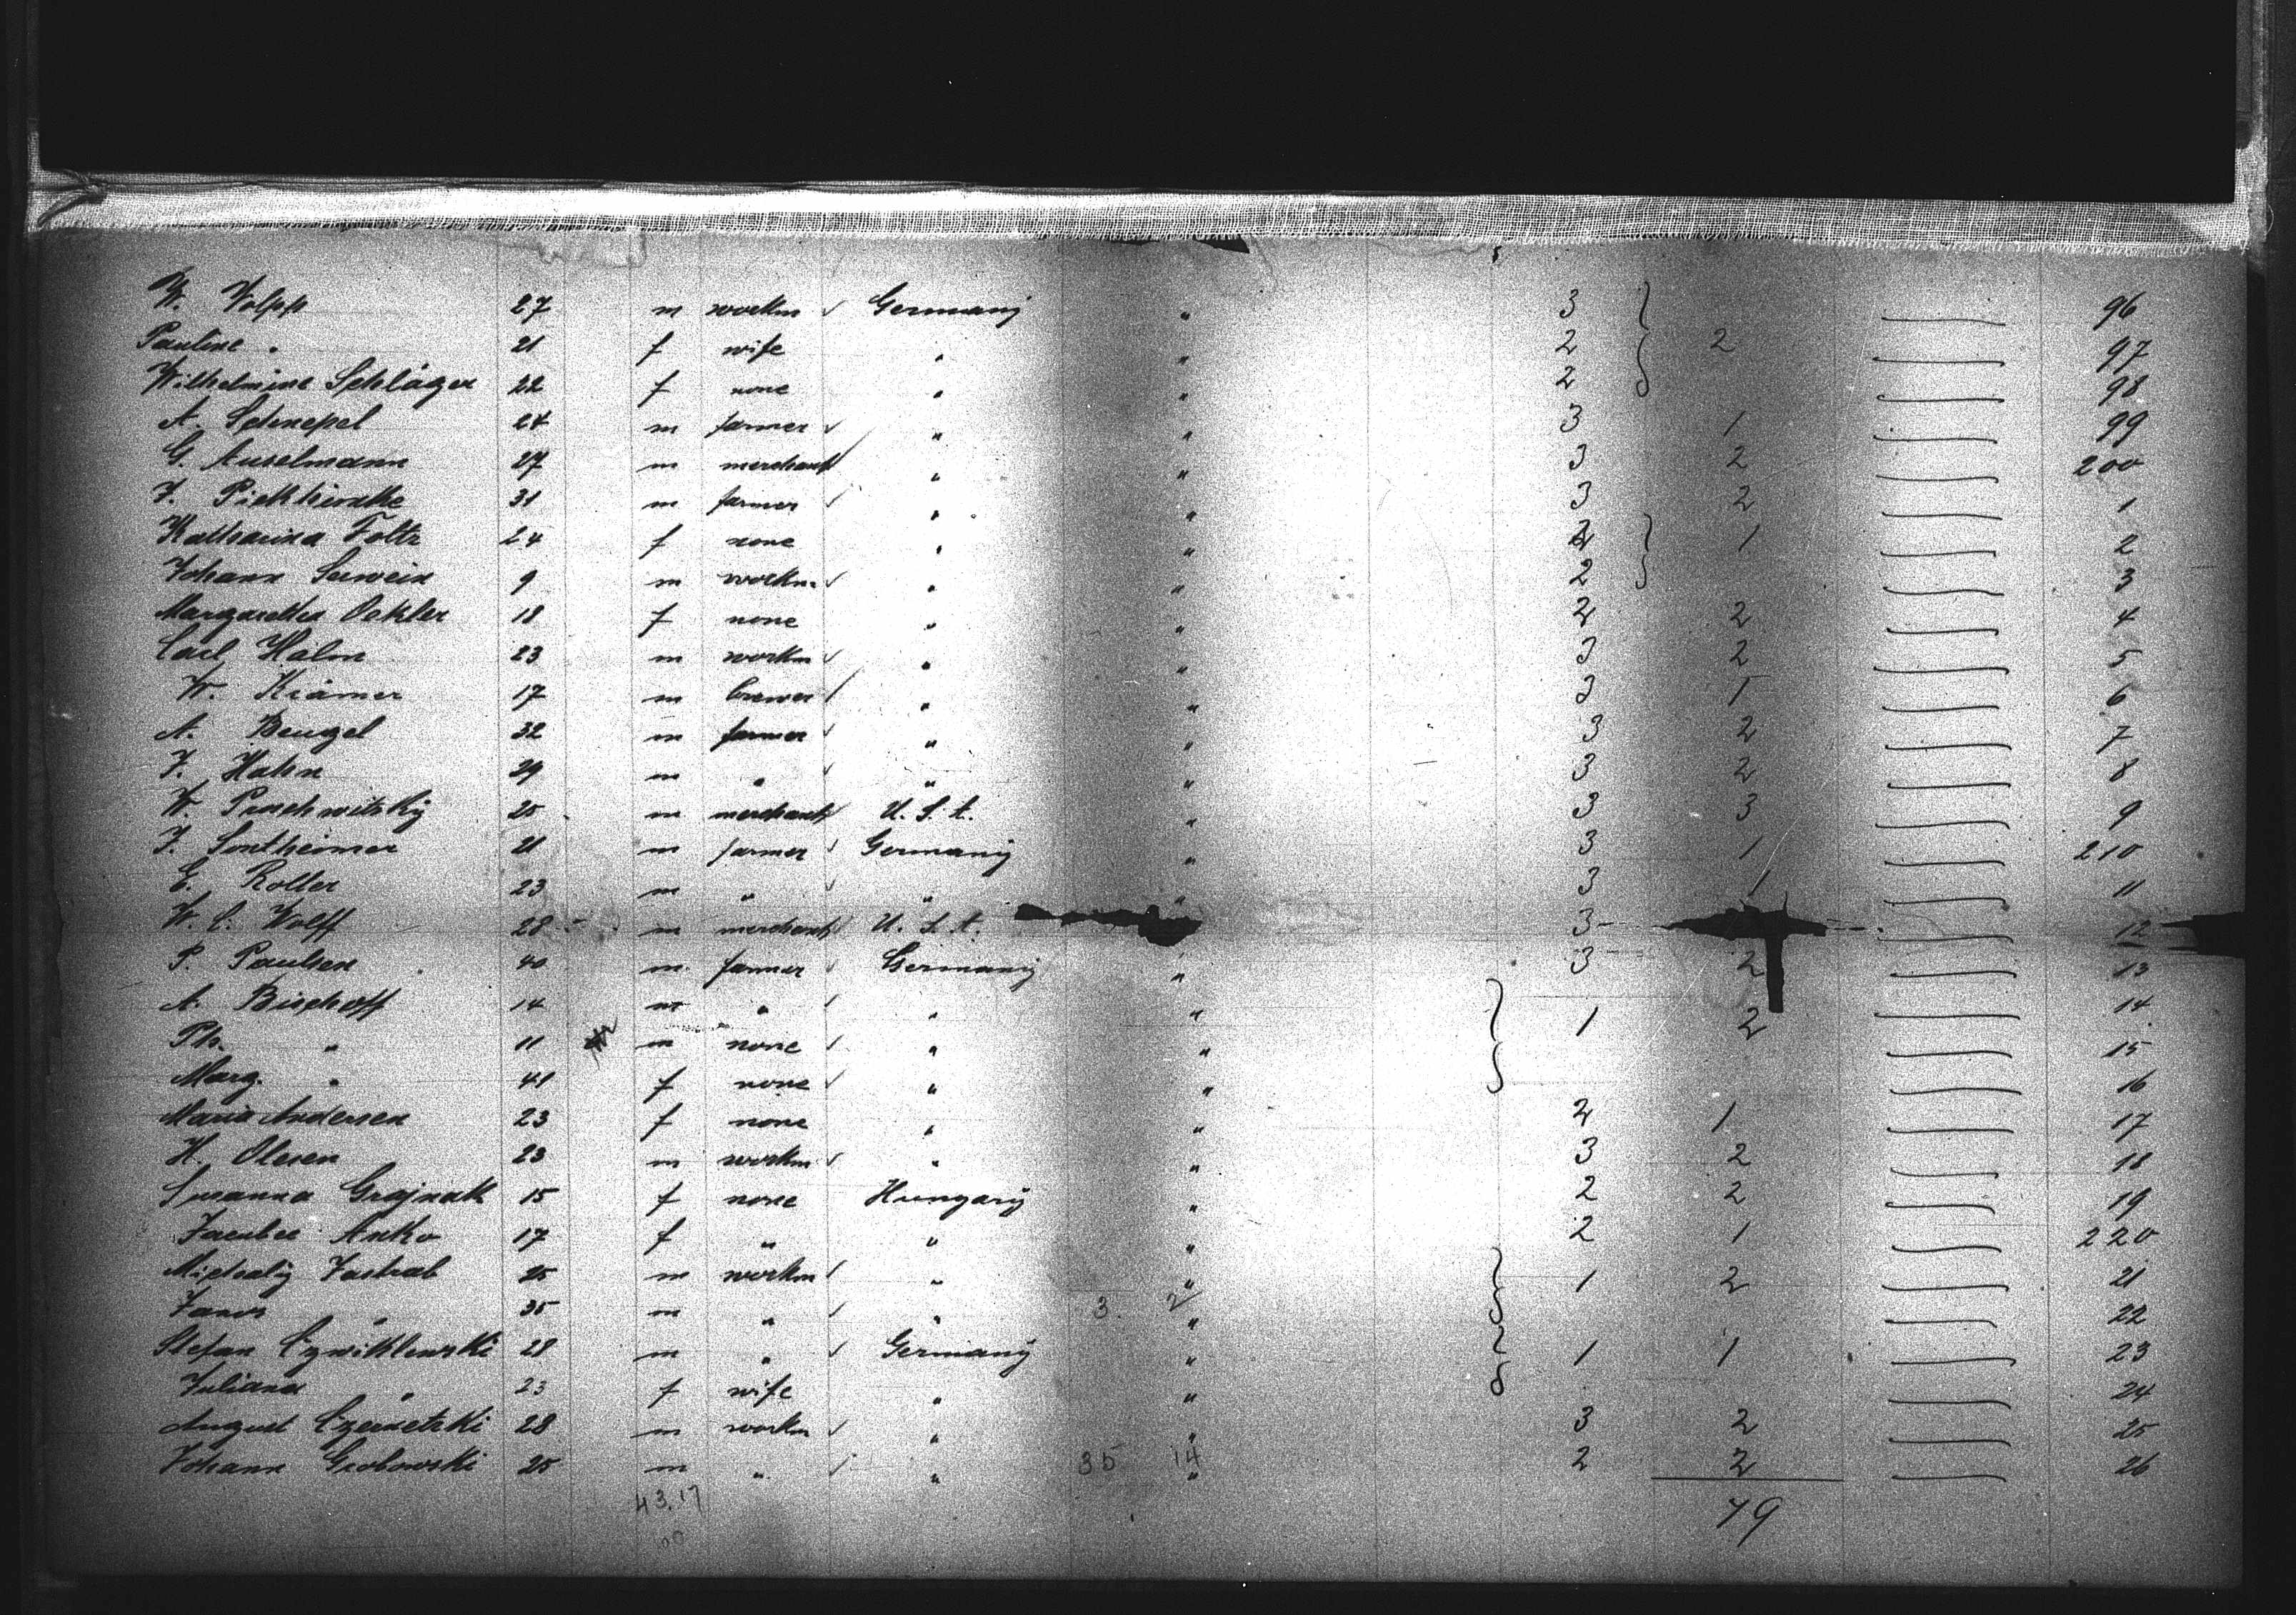 W. Volpp 27 m workm ✓ Germany " 3 96
Pauline " 21 f wife " " 2 2 97
Wilhelmine Schläger 22 f none " " 2 98
A. Schnepel 24 m farmer ✓ " " 3 1 99
G. Muselmann 27 m merchant " " 3 2 200
31 m farmer ✓ " " 3 2 1
Katharina Foltz 24 f none " " 2 1 2
Johann 9 m workm. ✓ " " 2 3
Margaretha 18 f none " " 2 2 4
Carl Halm 23 m workm ✓ " " 3 2 5
W. Krämer 17 m brewer ✓ " " 3 1 6
A. Bengel 32 m farmer ✓ " " 3 2 7
J. Hahn 29 m " ✓ " " 3 2 8
W. 25 m merchant U. S. t. " 3 3 9
J. Sontheimer 21 m farmer ✓ Germany " 3 1 210
E. Roller 23 m " ✓ " " 3 1 11
W. C. Wolff 28 m merchant U. S. t. 3 12
P. Paulsen 40 m farmer ✓ Germany " 3 2 13
A. Bischoff 14 m " ✓ " " 1 2 14
Ph. " 11 m none ✓ " " 15
Marg. " 41 f none ✓ " " 16
Maria Andersen 23 f none " " 2 1 17
H. Olesen 23 m workm ✓ " " 3 2 18
Susanna Grajnak 15 f none Hungary " 2 2 19
Anko 17 f " " " 2 1 220
25 m workm ✓ " " 1 2 21
Janos " 35 m " ✓ " 3. 2 " 22
Stefan 28 m " ✓ Germany " 1 1 23
Juliana " 23 f wife " " 24
August 28 m workm ✓ " " 3 2 25
Johann Grabowski 25 m " ✓ " 35 14 " 2 2 26
43.17
79